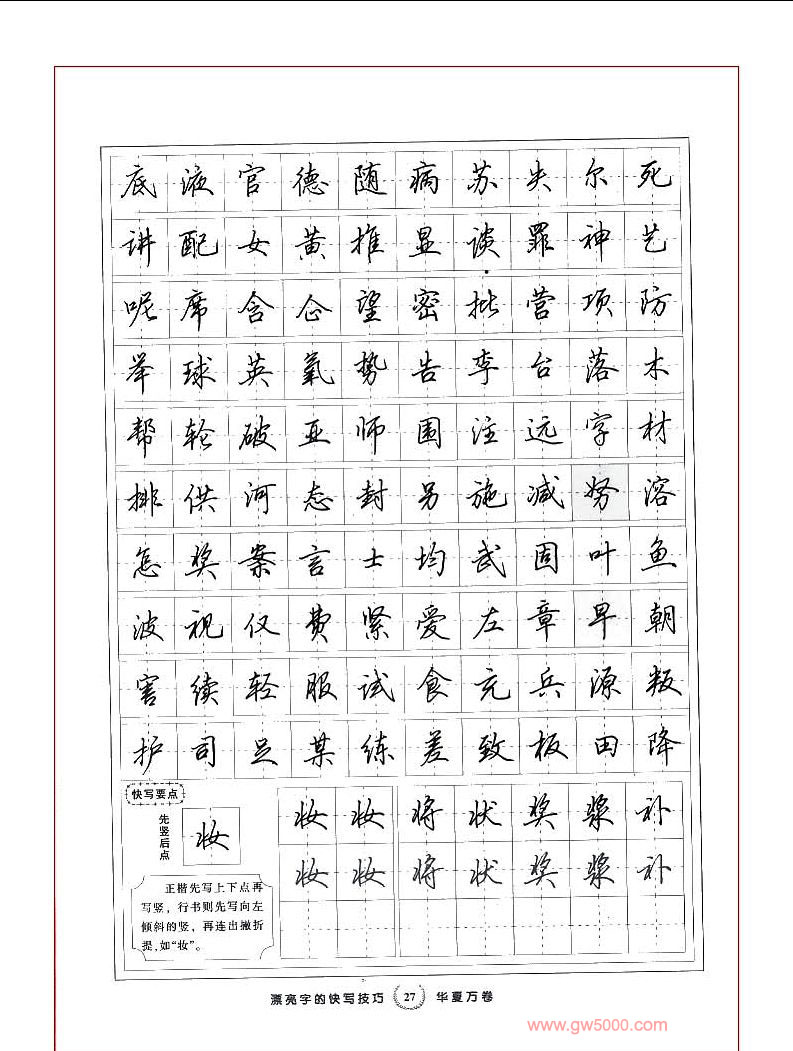 底液官德随病苏失尔死
讲配女黄推显谈罪神艺
呢席含企望密批营项防
举球英氧势告李台落木
帮轮破亚师围注远字材
排供河态封另施减努溶
怎奖案言士均武固叶鱼
波视仅费紧爱左章早朝
害续轻服试食充兵源叛
护司足某练差致板田降
快写要点
先竖后点
妆
正楷先写上下点再
写竖，行书则先写向左
倾斜的竖，再连出撇折
提，如“妆”。
妆妆将状奖浆补
妆妆将状奖浆补
漂亮字的快写技巧 27 华夏万卷
www.gw5000.com